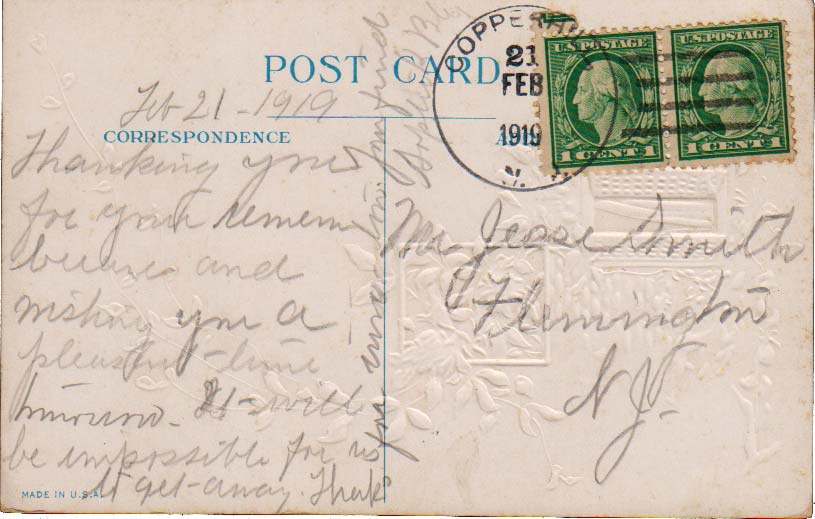 POST CARD
Feb 21-1919
CORRESPONDENCE
Thanking you
for your remem
berence and
wishing you a
pleasant time
tomorrow. It will
be impossible for us
to get away. Thanks
for your
friend
MADE IN U.S.A.
COPPERHILL
21
FEB
1919
N.
U.S. POSTAGE
1 CENT 1
U.S. POSTAGE
1 CENT 1
Mr. Jesse Smith
Flemington
N.J.